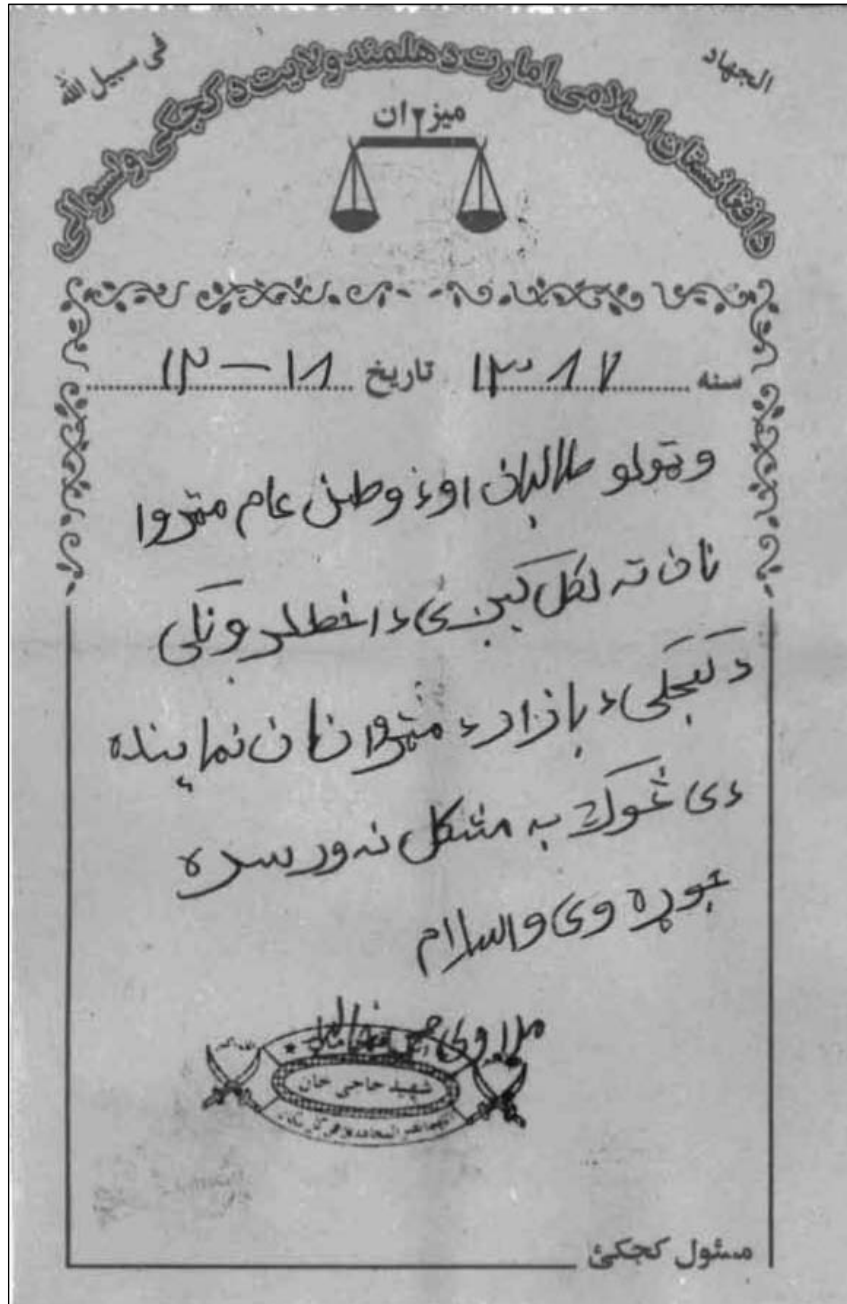 الجهاد
فی سبیل الله
دافغانستان اسلامی امارت دهلمند ولایت د کجکی ولسوالی
میزان
سنه ۱۳۸۷ تاریخ ۱۸ – ۱۲
و ټولو طالبان او د وطن عام متروا
نان ته لکل کیږی د اخطلرونکی
د کجکی د بازار د متروانان نماینده
دی څوک به مشکل نه ورسره
جوړه وی والسلام
شهید حاجی خان
مسئول کجکئ